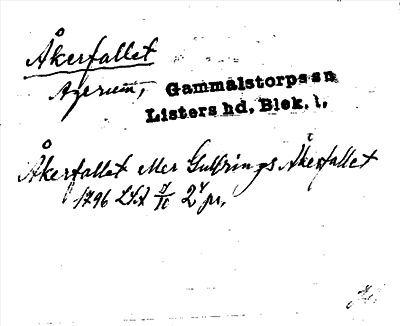 Åkerfallet
Agerum, Gammalstorps sn
Listers hd. Blek. l.
Åkerfallet eller Gullrings Åkerfallet
1796 LSA 2 pr.